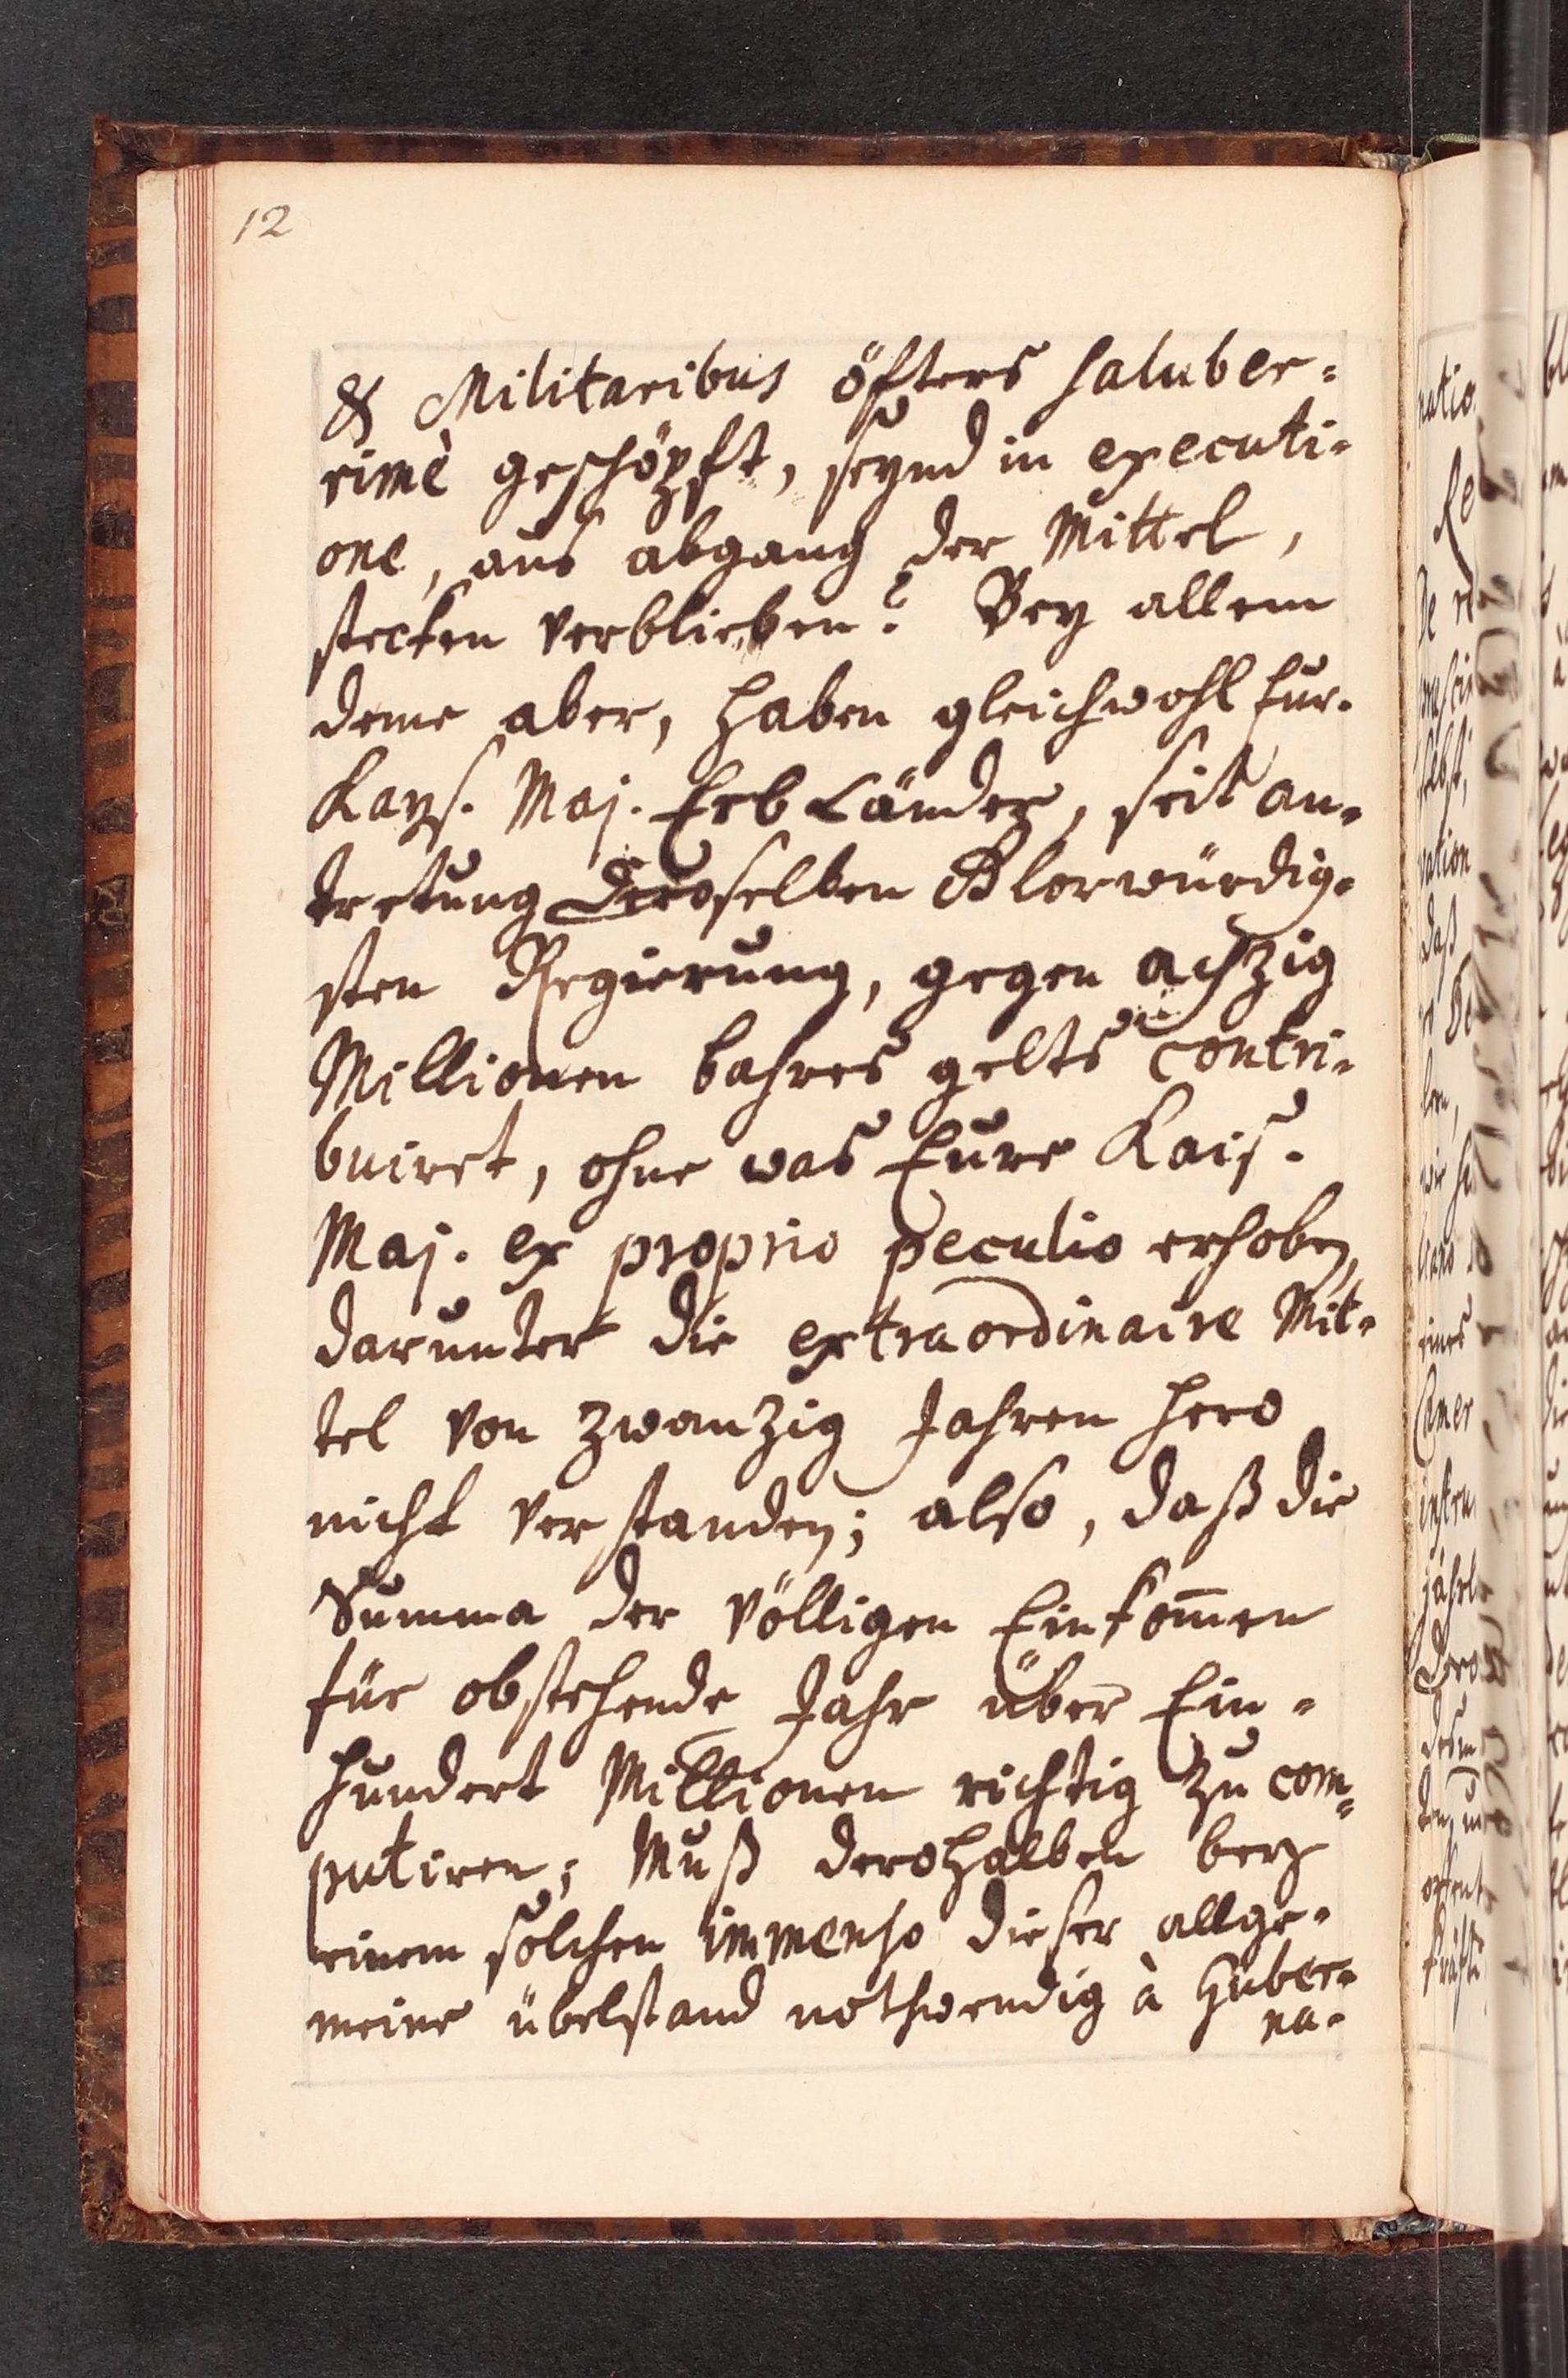 12
& Militaribus öfters saluber=
rimè geschöpft, seynd in executi=
one, aus abgang der Mittel,
stecken verblieben? Bey allem
deme aber, haben gleichwohl Eur.
Kays. Maj. Erb Länder, seit an=
trettung deroselben Glorwürdig=
sten Regierung, gegen achzig
Millionen bahres gelts contri=
buiret, ohne was Eure Kais.
Maj. ex proprio peculio erhoben,
darunter die extraordinaire Mit=
tel von zwanzig Jahren hero
nicht verstanden; also, daß die
Summa der völligen Einkom̄en
für obstehende Jahr über Ein=
hundert Millionen richtig zu com=
putiren; Muß derohalben bey
einem solchen immenso dieser allge=
meine übelstand nothwendig à Guber=
na=